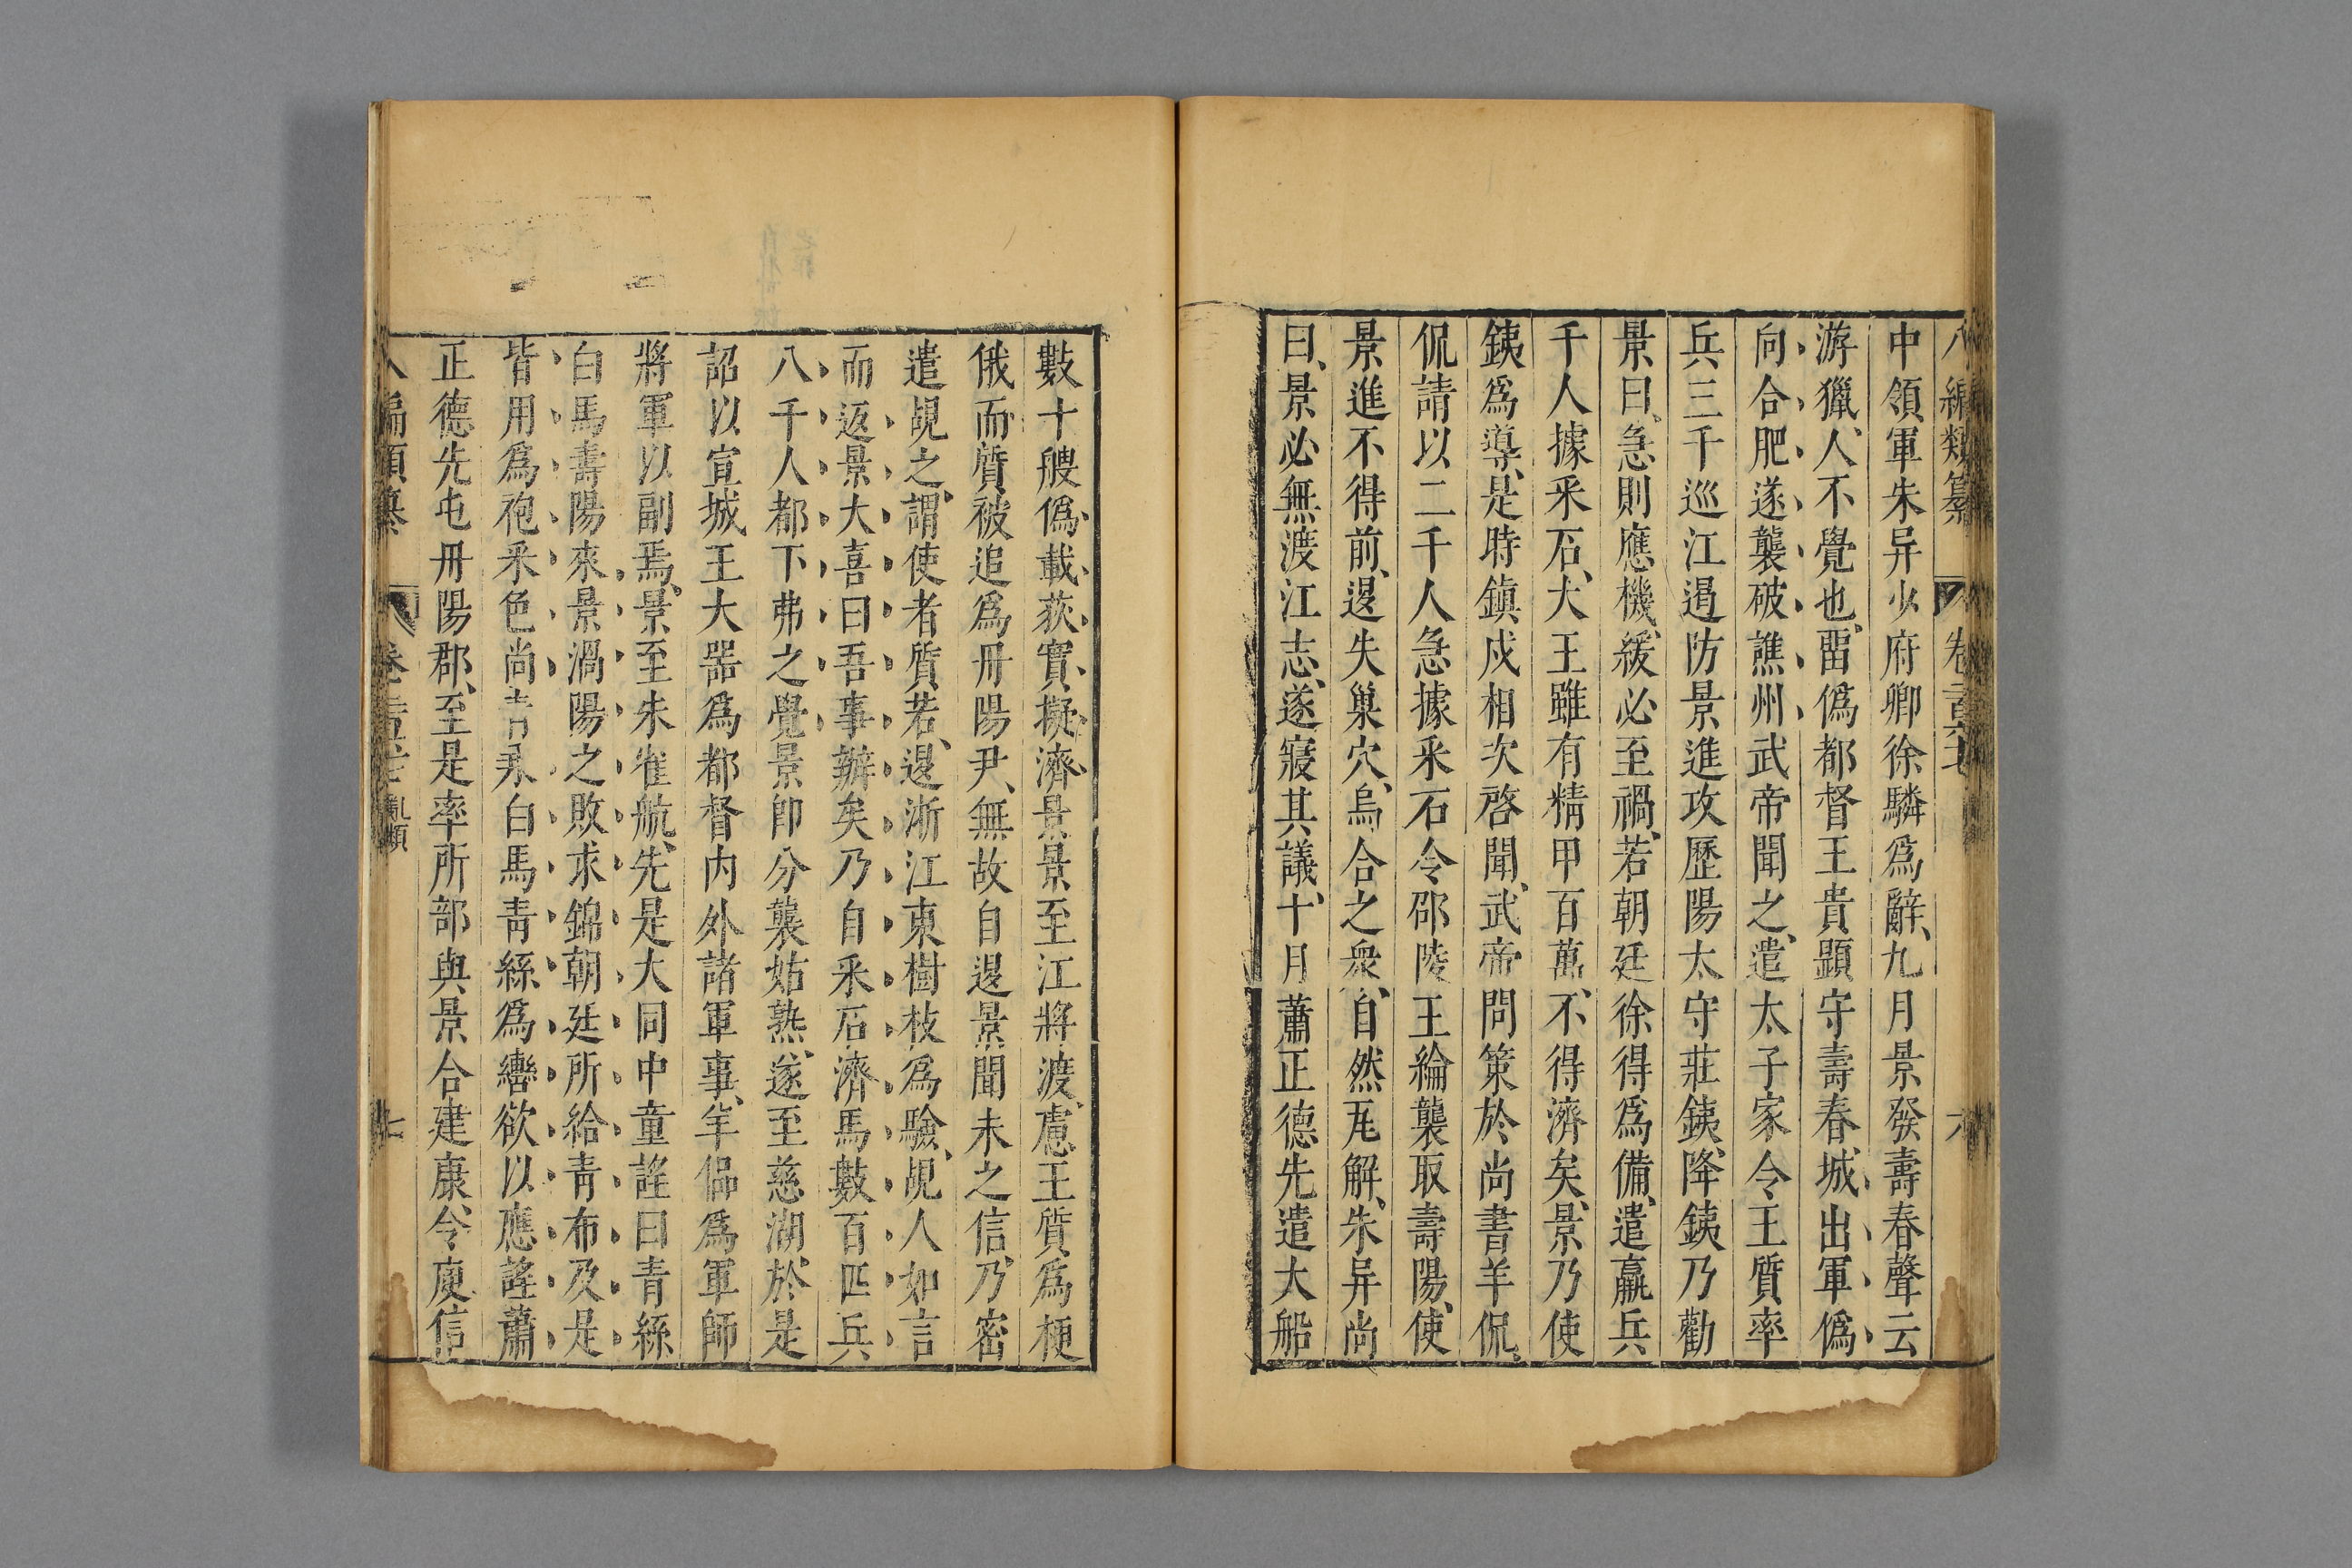 八編類纂 卷 六
中領軍朱异少府卿徐驎爲辭、九月景發壽春聲云
游獵、人不覺也、畱僞都督王貴顯守壽春、城出軍僞
向合肥遂襲破譙州武帝聞之、遣太子家令王質率
兵三千巡江遏防景進攻歷陽太守莊鉄、降鉄乃勸
景曰、急則應機、緩必至禍、若朝廷徐得爲備、遣羸兵
千人據釆石、大王雖有精甲百萬、不得濟矣、景乃使
鉄爲導、是時鎮戍相次啓聞、武帝問策於尚書羊侃、
侃請以二千人急據釆石令邵陵王綸襲取壽陽、使
景進不得前、退失巢穴、烏合之衆、自然瓦解、朱异尚
曰、景必無渡江志、遂寢其議、十月蕭正德先遣大船
數十艘僞載荻實擬濟景景至江將渡、慮王質爲梗
俄而質被追爲丹陽尹、無故自退景聞未之信、乃密
遣覘之、謂使者質若退淅江東樹枝爲驗、覘人如言
而返景大喜曰吾事辦矣乃自釆石濟馬數百匹兵
八千人都下弗之覺景即分襲姑熟、遂至慈湖、於是
詔以宣城王大器爲都督内外諸軍事、羊侃爲軍師
將軍以副焉、景至朱雀航、先是大同中童謠曰青絲
白馬壽陽來景渦陽之敗求錦朝廷所給青布及是
皆用爲袍釆色尚青乘白馬青絲爲轡欲以應謠蕭
正德先屯丹陽郡、至是率所部與景合建康、令庾信
八編類纂 卷 亂類 七